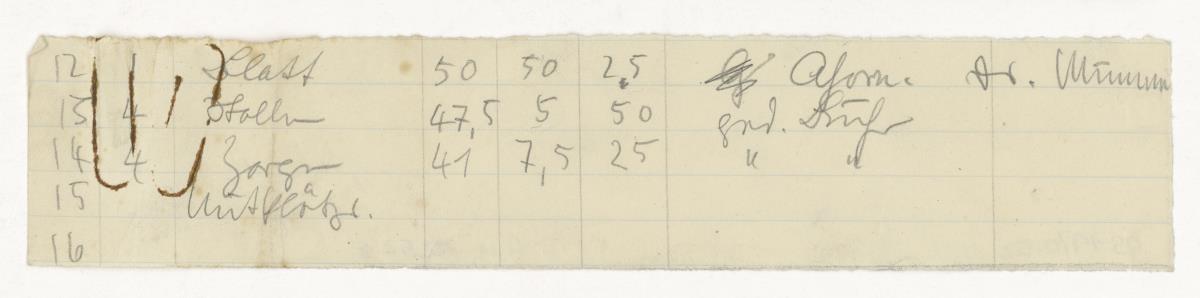 12 1 Blatt 50 50 2,5 Ahorn.
13 4 Stollen 47,5 5 50 ged. Buche
14 4 Zargen 41 7,5 25 " "
15
16